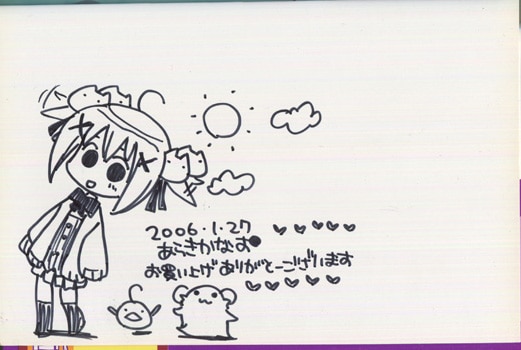 2006.1.27
あらきかなお
お買い上げありがとーございます